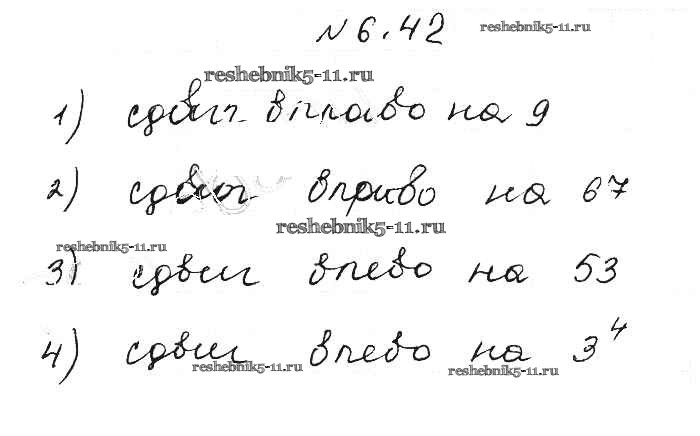 № 6.42 reshebnik5-11.ru
reshebnik5-11.ru
1) сдвиг вправо на 9
2) сдвиг вправо на 67
reshebnik5-11.ru
reshebnik5-11.ru
3) сдвиг влево на 53
4) сдвиг влево на 3⁴
reshebnik5-11.ru reshebnik5-11.ru